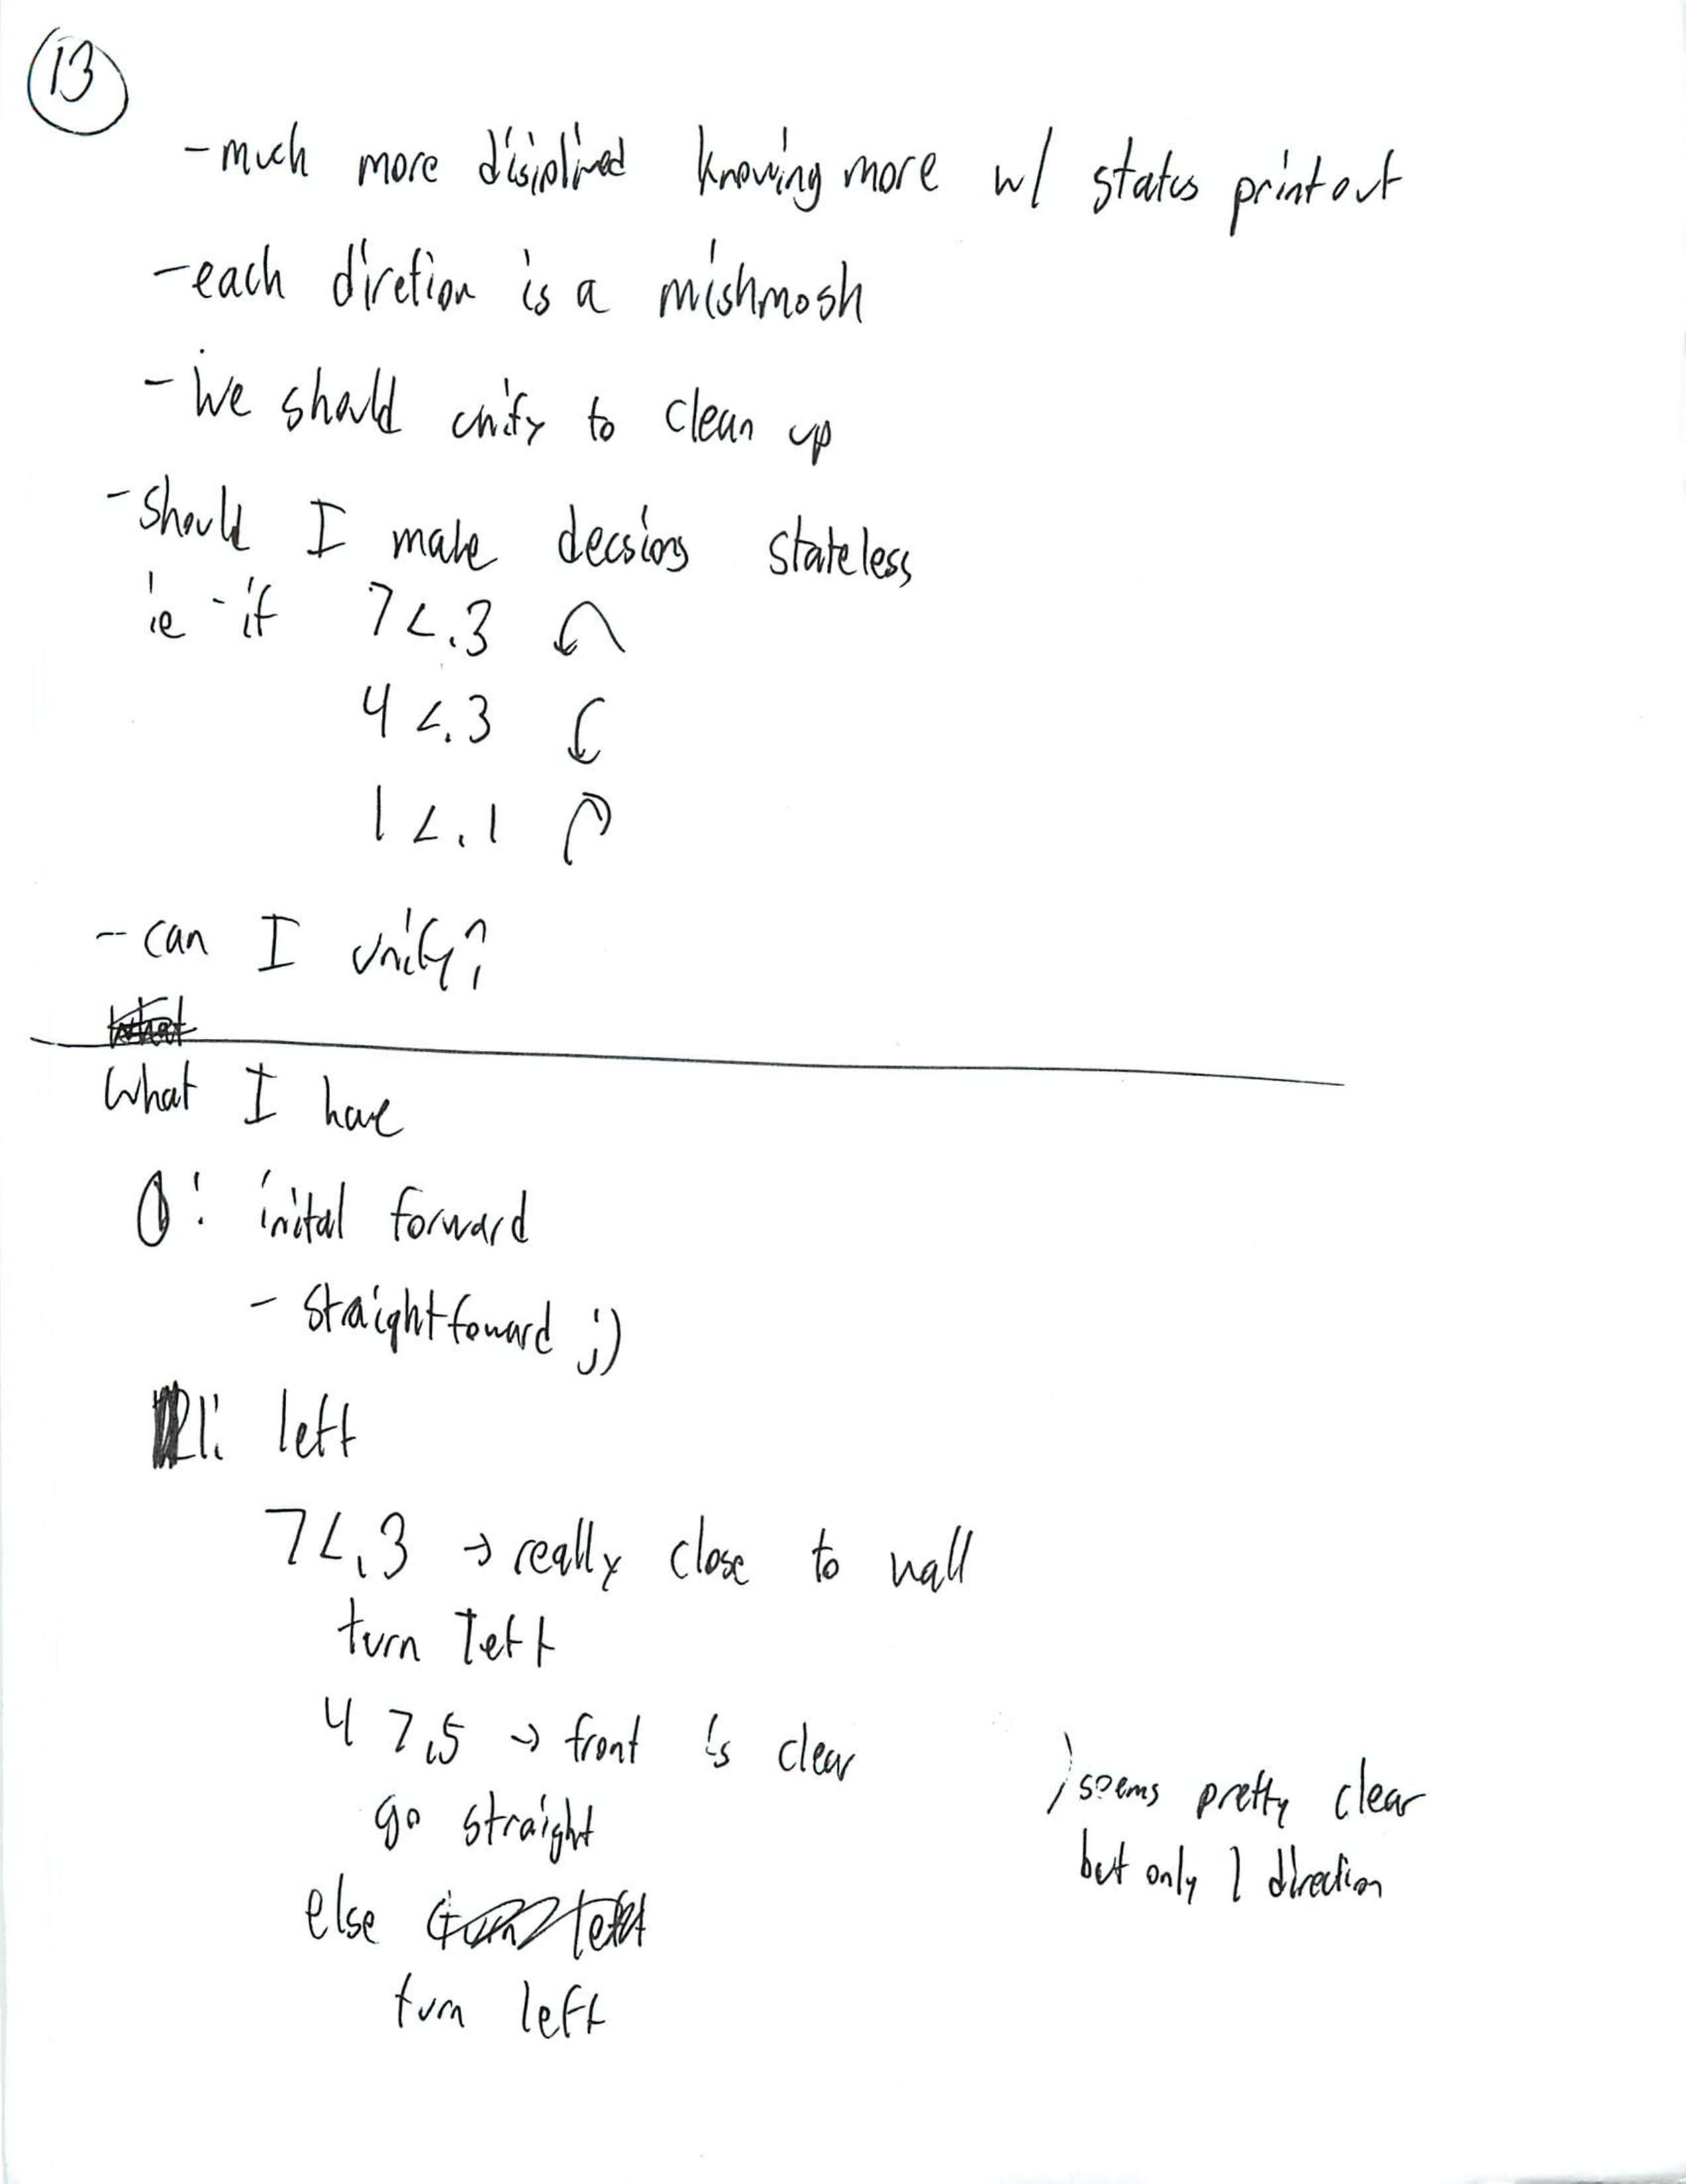 13
- much more disiplined knowing more w/ status printout
- each diretion is a mishmosh
- We should unify to clean up
- Should I make decsions stateless
ie - if 7 < .3
4 < .3
1 < .1
- can I unify?
What
What I have
0: inital forward
- straightfoward ;)
1: left
7 < .3 → really close to wall
turn left
4 > .5 → front is clear
go straight
} seems pretty clear
but only 1 direction
else turn left
turn left